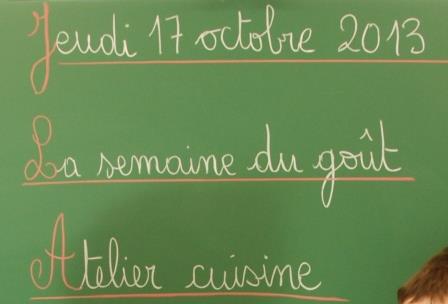 Jeudi 17 octobre 2013
La semaine du goût
Atelier cuisine